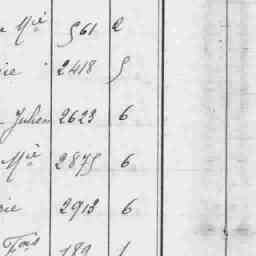 Mie 561 2
ie 2418 5
Julien 2623 6
Mie 2875 6
ie 2913 6
Fois 189 1